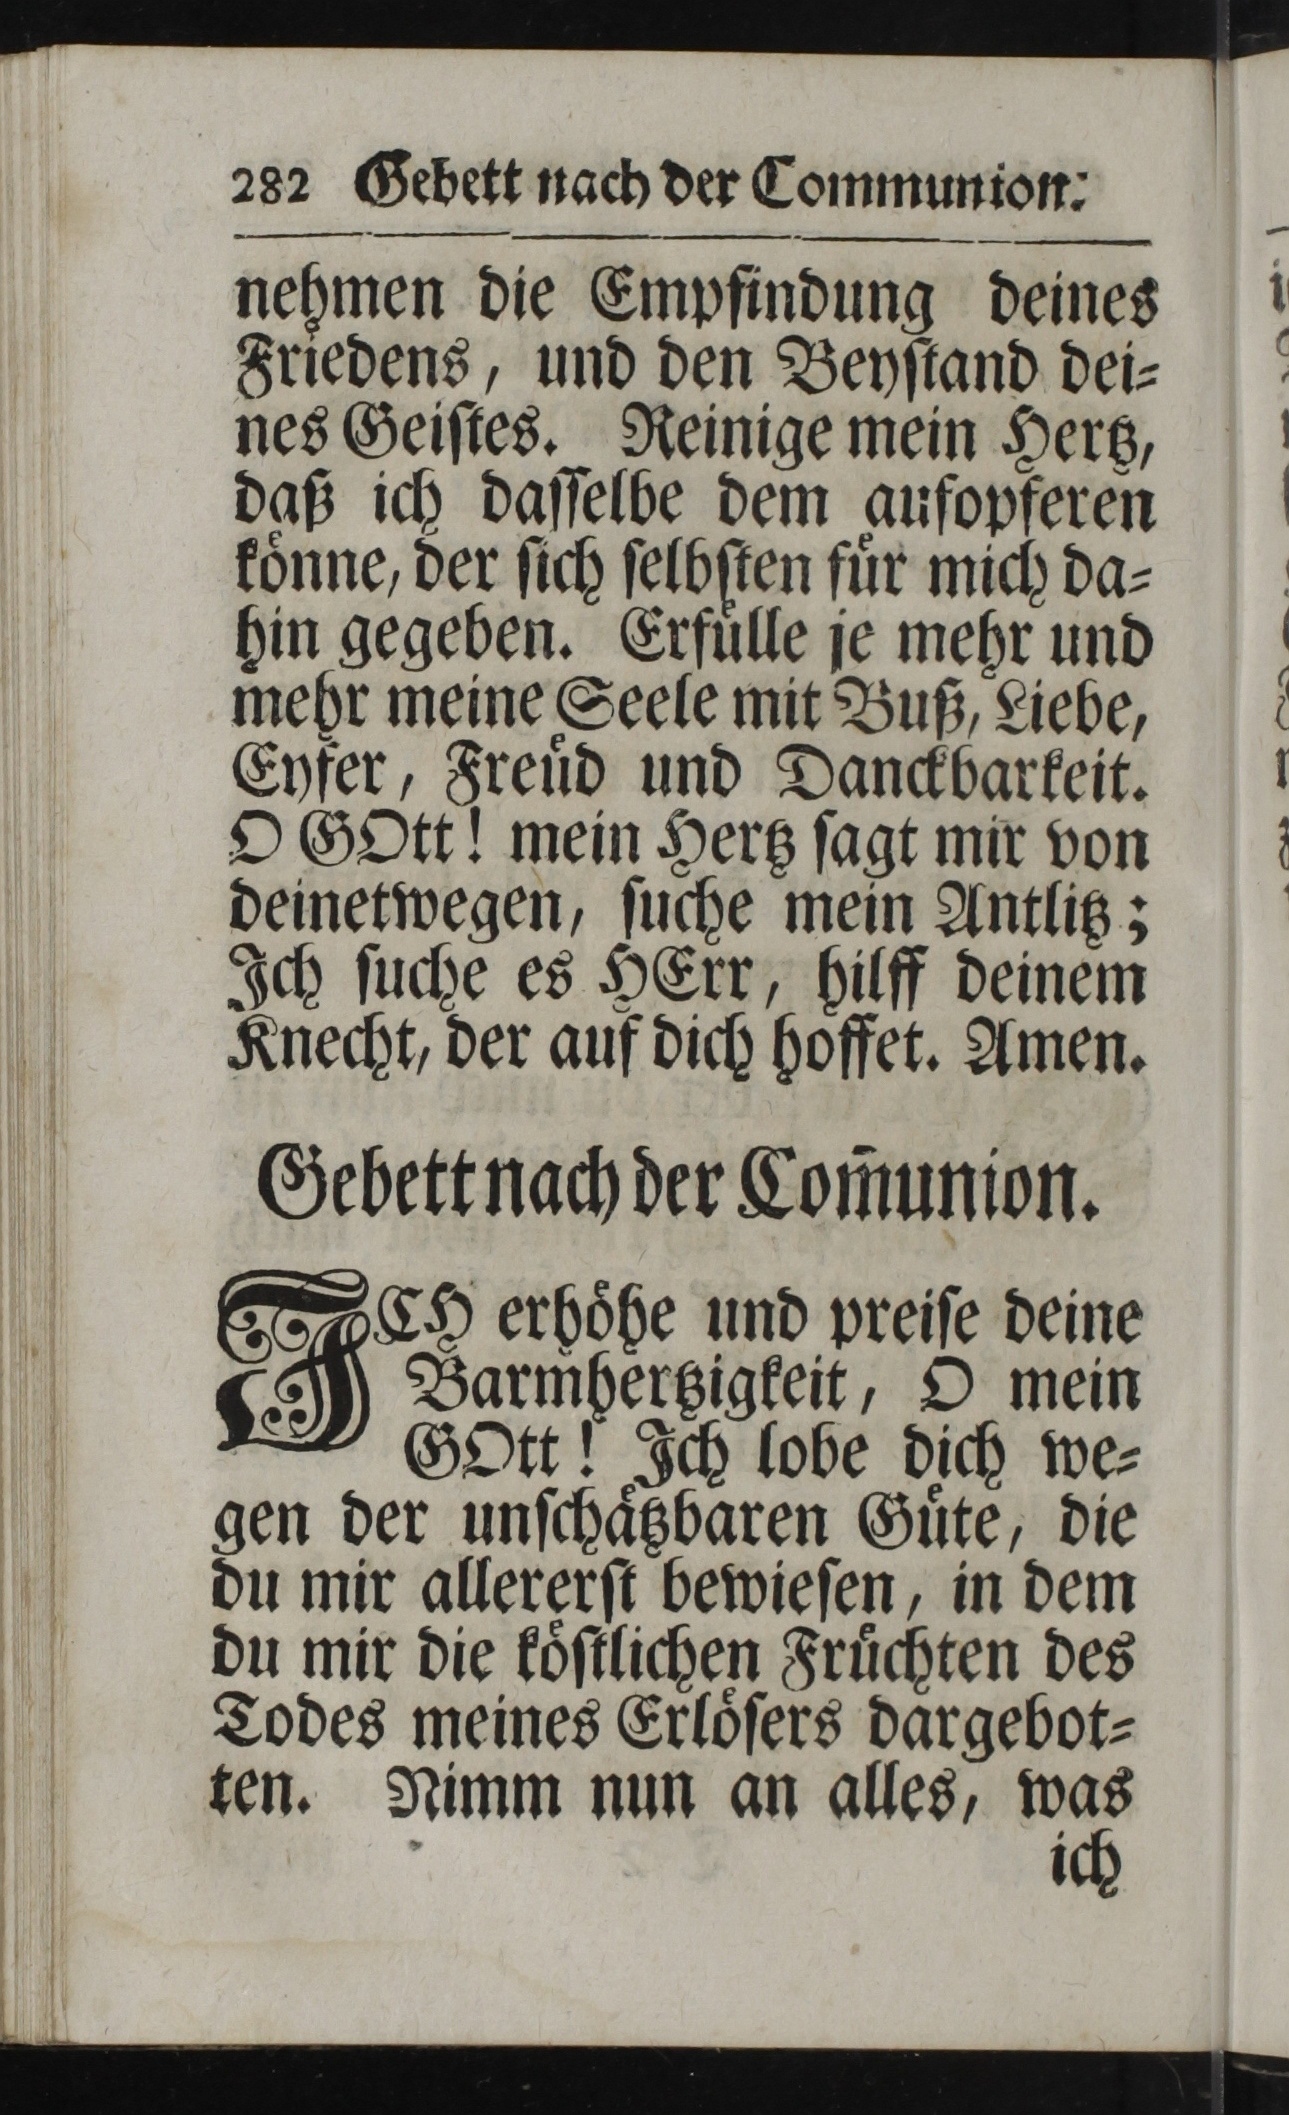 282 Gebett nach der Communion.
nehmen die Empfindung deines
Friedens, und den Beyſtand dei⸗
nes Geiſtes. Reinige mein Hertz,
daß ich daſſelbe dem aufopferen
koͤnne, der ſich ſelbſten fuͤr mich da⸗
hin gegeben. Erfuͤlle je mehr und
mehr meine Seele mit Buß, Liebe,
Eyfer, Freuͤd und Danckbarkeit.
O GOtt! mein Hertz ſagt mir von
deinetwegen, ſuche mein Antlitz;
Ich ſuche es HErr, hilff deinem
Knecht, der auf dich hoffet. Amen.
Gebett nach der Com̃union.
ICH erhoͤhe und preiſe deine
Barmhertzigkeit, O mein
GOtt! Ich lobe dich we⸗
gen der unſchaͤtzbaren Guͤte, die
du mir allererſt bewieſen, in dem
du mir die koͤſtlichen Fruͤchten des
Todes meines Erloͤſers dargebot⸗
ten. Nimm nun an alles, was
ich